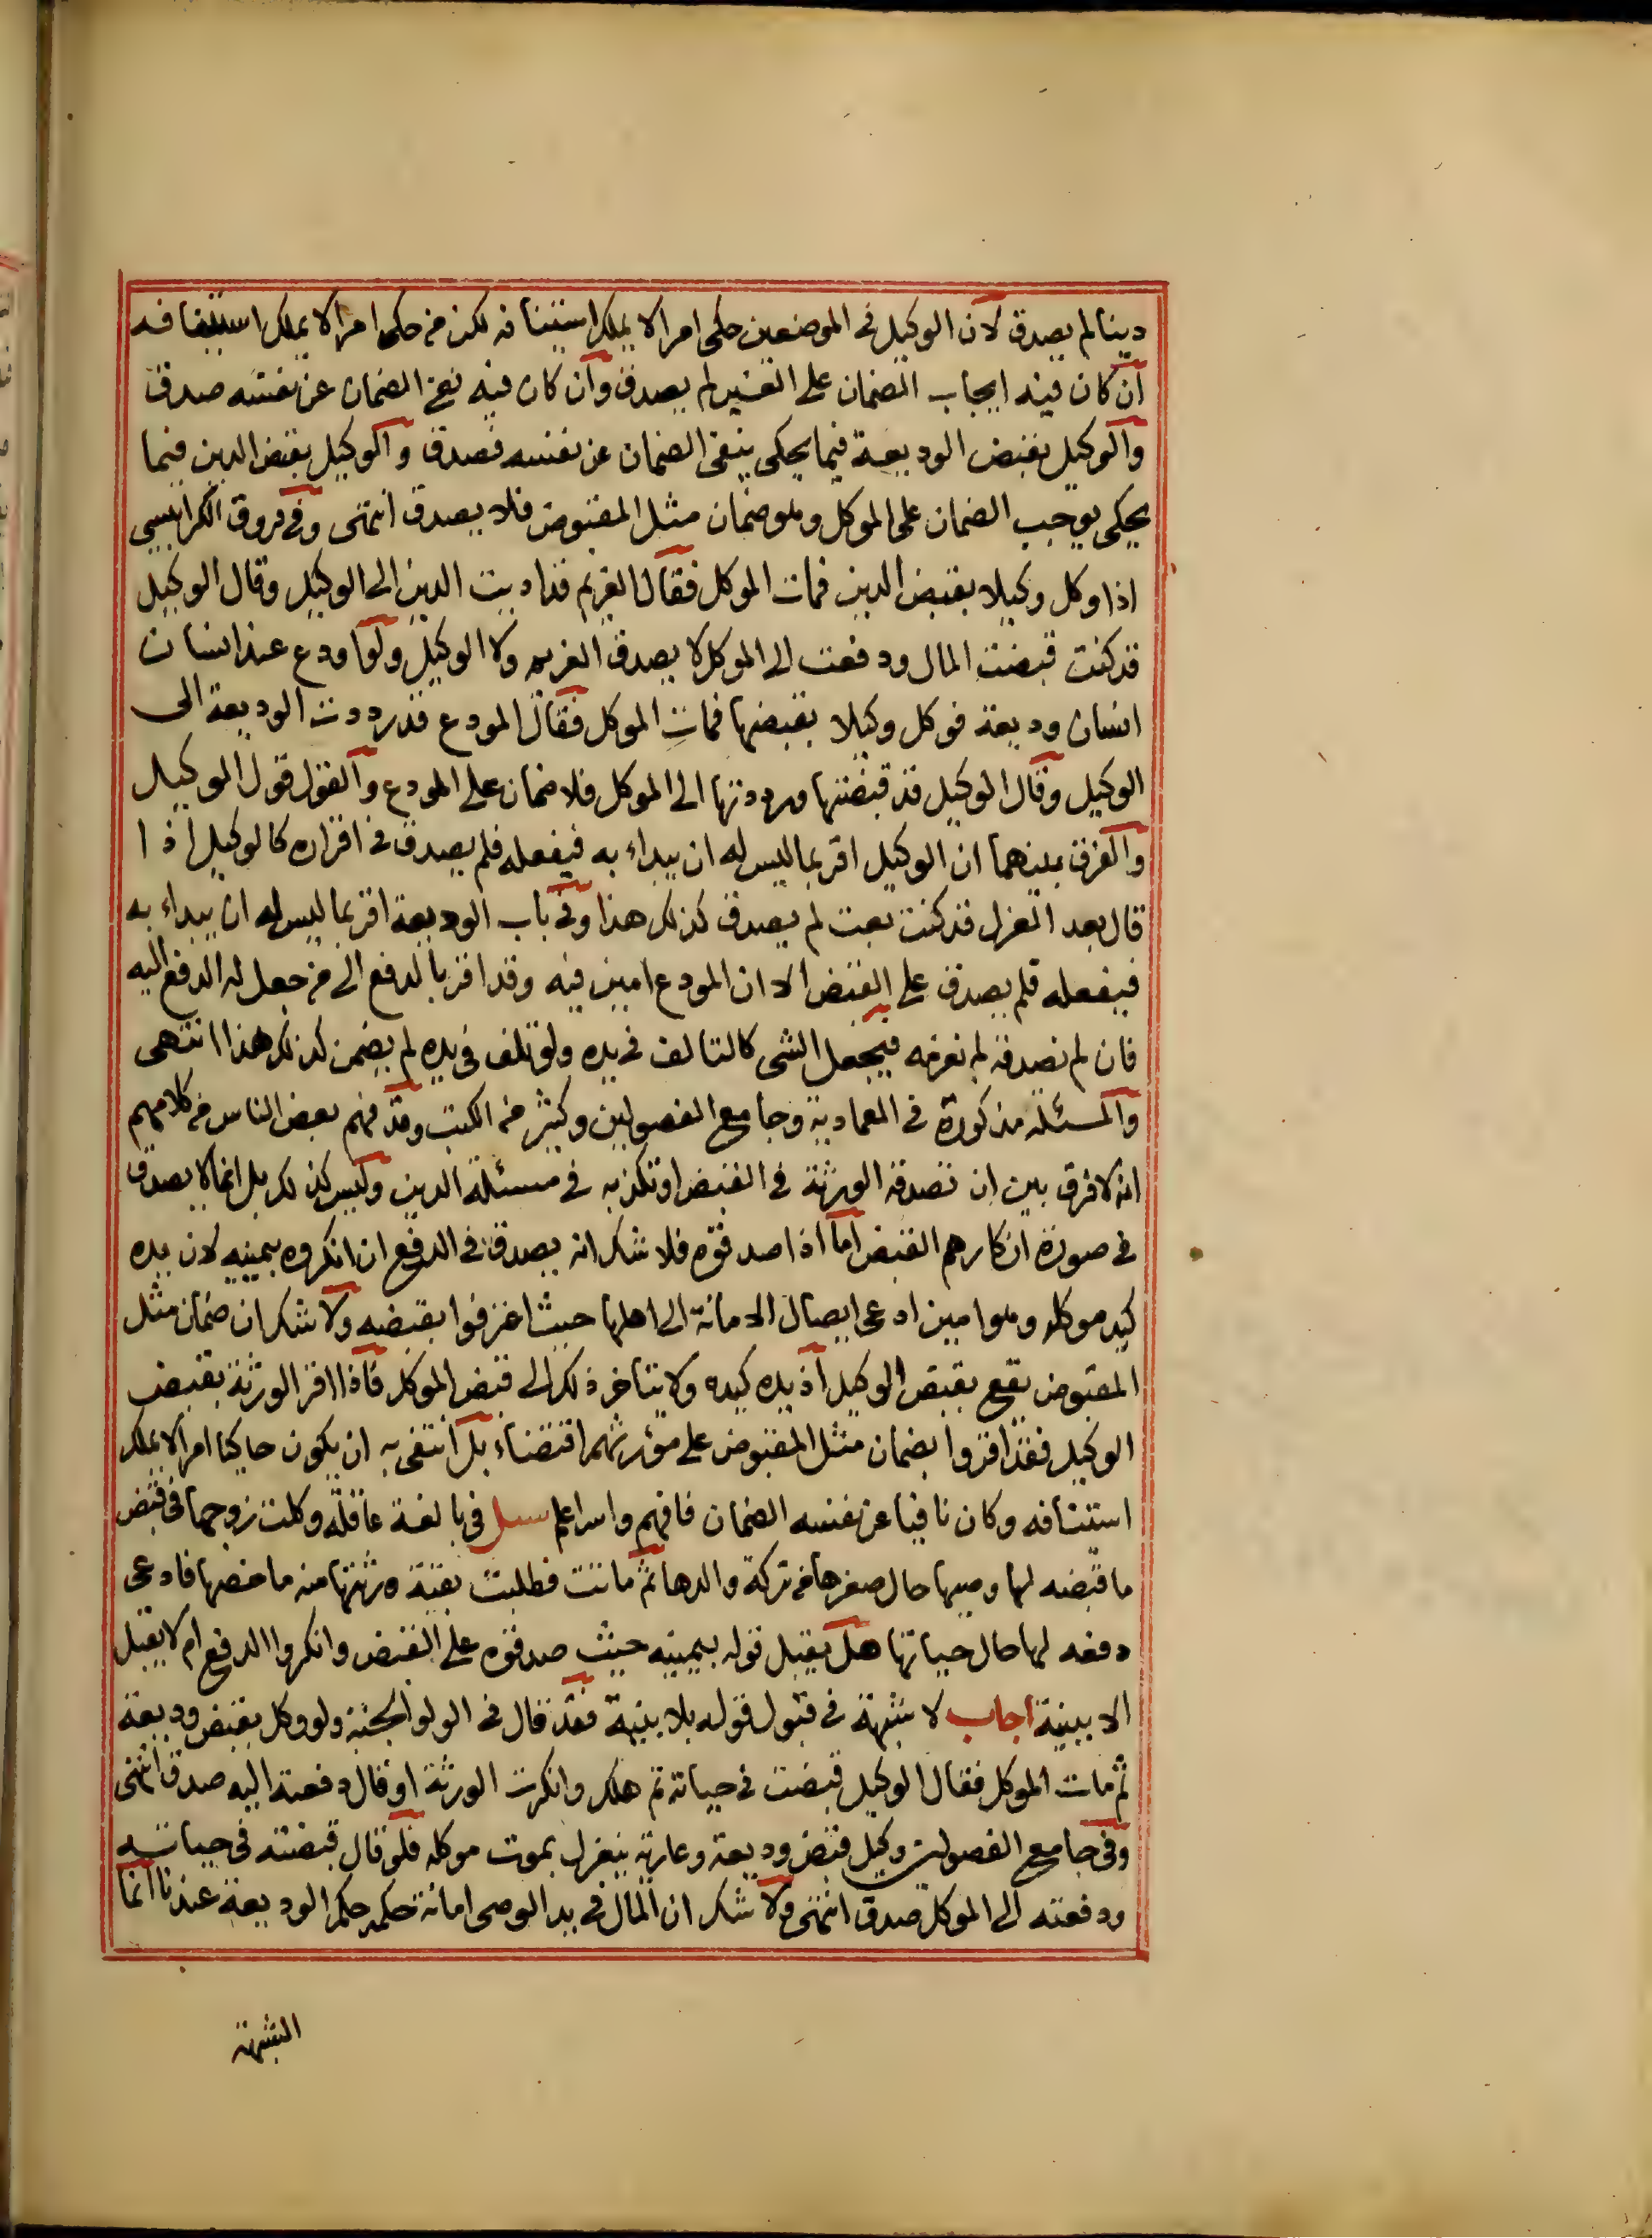 دينا لم يصدق لان الوكيل في الموضعين حكى امرا لا يملك استئنافه لكن من حكى امرا لا يملك استئنافه
ان كان فيه ايجاب الضمان على الغير لم يصدق وان كان فيه نفي الضمان عن نفسه صدق
والوكيل بقبض الوديعة فيما يحكى ينفى الضمان عن نفسه فصدق والوكيل بقبض الدين فيما
يحكى يوجب الضمان على الموكل وهو ضمان مثل المقبوض فلا يصدق انتهى وفي فروق الكرابيسي
اذا وكل وكيلا بقبض الدين فمات الموكل فقال الغريم قد اديت الدين الى الوكيل وقال الوكيل
قد كنت قبضت المال ودفعت الى الموكل لا يصدق الغريم ولا الوكيل ولو اودع عند انسان
انسان وديعة فوكل وكيلا بقبضها فمات الموكل فقال المودع قد رددت الوديعة الى
الوكيل وقال الوكيل قد قبضتها ورددتها الى الموكل فلا ضمان على المودع والقول قول الوكيل
والفرق بينهما ان الوكيل اقر بما ليس له ان يبداء به فيفعله فلم يصدق في اقراره كالوكيل اذا
قال بعد العزل قد كنت بعت لم يصدق كذلك هذا وفي باب الوديعة اقر بما ليس له ان يبداء به
فيفعله فلم يصدق على القبض الا ان المودع امين فيه وقد اقر بالدفع الى من جعل له الدفع اليه
فان لم نصدقه لم نغرمه فيجعل الشى كالتالف في يده ولو تلف في يده لم يضمن كذلك هذا انتهى
والمسئلة مذكورة في العمادية وجامع الفصولين وكثير من الكتب وقد فهم بعض الناس من كلامهم
انه لا فرق بين ان تصدقه الورثة في القبض او تكذبه في مسئلة الدين وليس كذلك بل انما لا يصدق
في صورة انكارهم القبض اما اذا صدقوه فلا شك انه يصدق في الدفع ان انكروه بيمينه لان يده
كيد موكله وهو امين ادعى ايصال الامانة الى اهلها حيث اعترفوا بقبضه ولا شك ان ضمان مثل
المقبوض يقع بقبض الوكيل اذ يده كيده ولا يتاخر ذلك الى قبض الموكل فاذا اقر الورثة بقبض
الوكيل فقد اقروا بضمان مثل المقبوض على مؤرثهم اقتضاء بل انتفى به ان يكون حاكيا امرا لا يملك
استئنافه وكان نافيا عن نفسه الضمان فافهم والله اعلم سىل في بالغة عاقلة وكلت زوجها في قبض
ما قبضه لها وصيها حال صغرها من تركة والدها ثم ماتت فطلبت بقية ورثتها منه ما خصها فادعى
دفعه لها حال حياتها هل يقبل قوله بيمينه حيث صدقوه على القبض وانكروا الدفع ام لا يقبل
الا ببينة اجاب لا شبهة في قبول قوله بلا بينة فقد قال في الولوالجية ولو وكل بقبض وديعة
ثم مات الموكل فقال الوكيل قبضت في حياته ثم هلك وانكرت الورثة او قال دفعته اليه صدق انتهى
وفي جامع الفصولين وكيل قبض وديعة وعارية ينعزل بموت موكله فلو قال قبضته في حياته
ودفعته الى الموكل صدق انتهى ولا شك ان المال في يد الوصى امانة حكمه حكم الوديعة عندنا انما
الشبهة